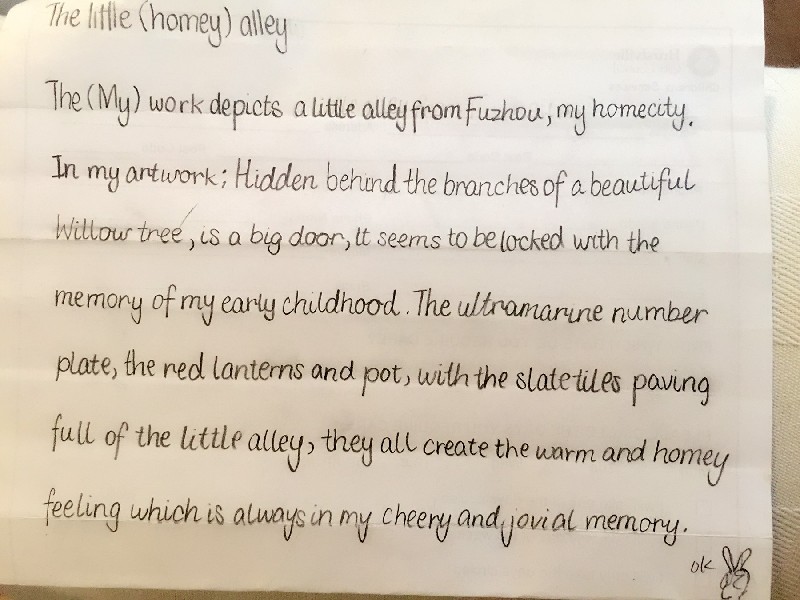 The little (homey) alley
The (My) work depicts a little alley from Fuzhou, my homecity.
In my artwork; Hidden behind the branches of a beautiful
Willow tree, is a big door, It seems to be locked with the
memory of my early childhood. The ultramarine number
plate, the red lanterns and pot, with the slate tiles paving
full of the little alley, they all create the warm and homey
feeling which is always in my cheery and jovial memory.
ok